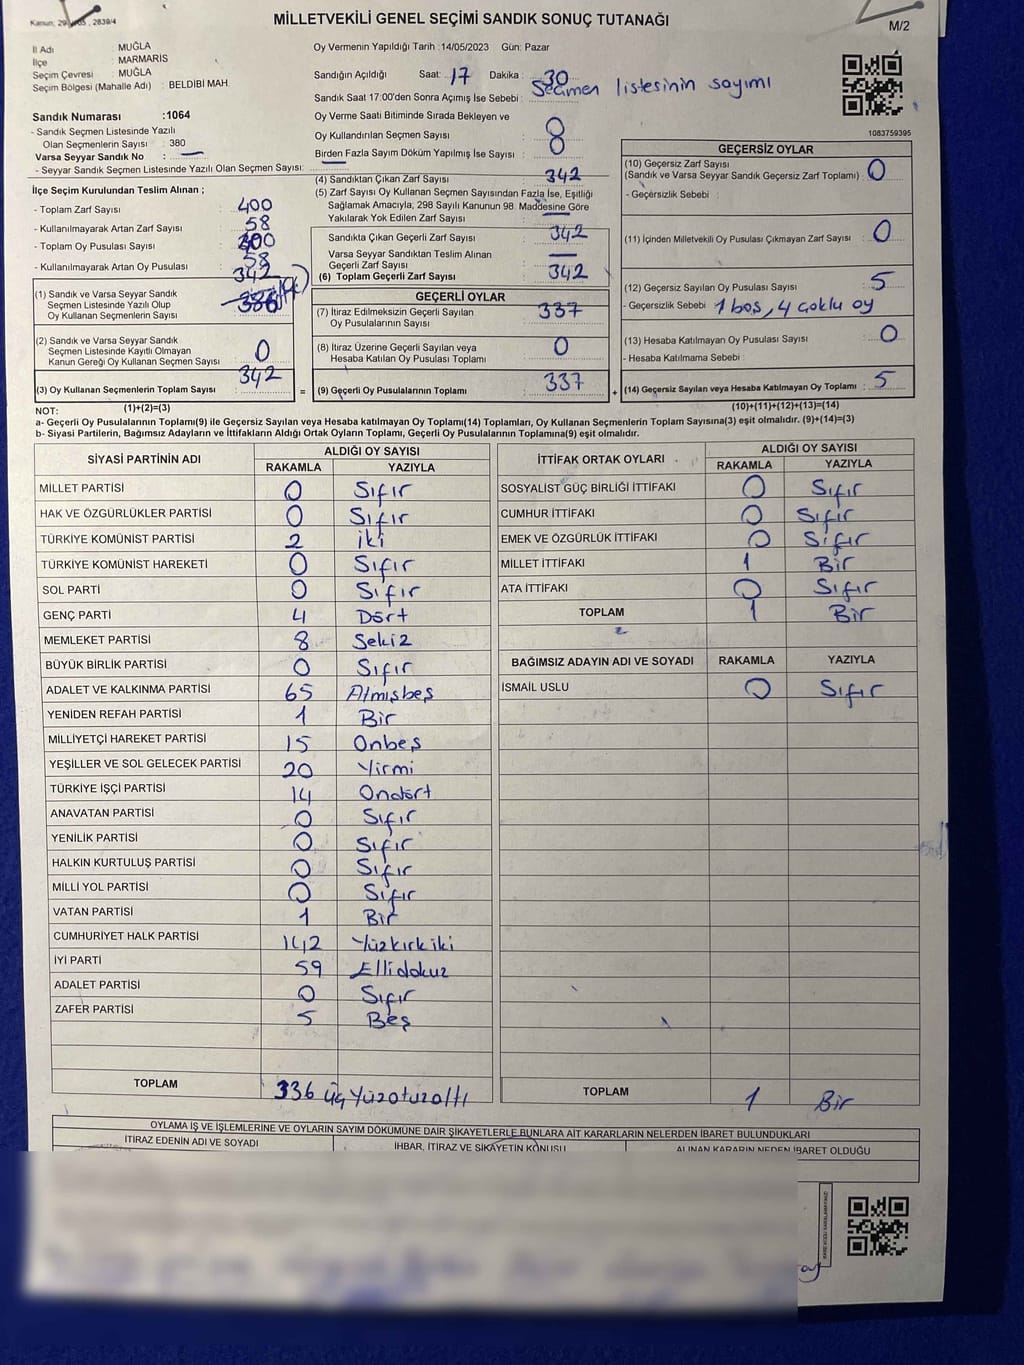 MİLLETVEKİLİ GENEL SEÇİMİ SANDIK SONUÇ TUTANAĞI
M/2
İl Adı : MUĞLA
İlçe : MARMARİS
Seçim Çevresi : MUĞLA
Seçim Bölgesi (Mahalle Adı) : BELDİBİ MAH.
Sandık Numarası :1064
- Sandık Seçmen Listesinde Yazılı
Olan Seçmenlerin Sayısı : 380
Varsa Seyyar Sandık No :
- Seyyar Sandık Seçmen Listesinde Yazılı Olan Seçmen Sayısı:
Oy Vermenin Yapıldığı Tarih :14/05/2023 Gün: Pazar
Sandığın Açıldığı Saat: 17 Dakika : 30
Sandık Saat 17:00'den Sonra Açımış İse Sebebi : Seçmen listesinin sayımı
Oy Verme Saati Bitiminde Sırada Bekleyen ve
Oy Kullandırılan Seçmen Sayısı : 8
Birden Fazla Sayım Döküm Yapılmış İse Sayısı :
1083759395
İlçe Seçim Kurulundan Teslim Alınan ;
- Toplam Zarf Sayısı : 400
- Kullanılmayarak Artan Zarf Sayısı : 58
- Toplam Oy Pusulası Sayısı : 400
- Kullanılmayarak Artan Oy Pusulası : 58
(1) Sandık ve Varsa Seyyar Sandık
Seçmen Listesinde Yazılı Olup
Oy Kullanan Seçmenlerin Sayısı : 342
(2) Sandık ve Varsa Seyyar Sandık
Seçmen Listesinde Kayıtlı Olmayan
Kanun Gereği Oy Kullanan Seçmen Sayısı : 0
(3) Oy Kullanan Seçmenlerin Toplam Sayısı : 342
(4) Sandıktan Çıkan Zarf Sayısı : 342
(5) Zarf Sayısı Oy Kullanan Seçmen Sayısından Fazla İse, Eşitliği
Sağlamak Amacıyla, 298 Sayılı Kanunun 98. Maddesine Göre
Yakılarak Yok Edilen Zarf Sayısı :
Sandıkta Çıkan Geçerli Zarf Sayısı : 342
Varsa Seyyar Sandıktan Teslim Alınan
Geçerli Zarf Sayısı :
(6) Toplam Geçerli Zarf Sayısı : 342
GEÇERLİ OYLAR
(7) İtiraz Edilmeksizin Geçerli Sayılan
Oy Pusulalarının Sayısı : 337
(8) İtiraz Üzerine Geçerli Sayılan veya
Hesaba Katılan Oy Pusulası Toplamı : 0
= (9) Geçerli Oy Pusulalarının Toplamı : 337
GEÇERSİZ OYLAR
(10) Geçersiz Zarf Sayısı
(Sandık ve Varsa Seyyar Sandık Geçersiz Zarf Toplamı) : 0
- Geçersizlik Sebebi :
(11) İçinden Milletvekili Oy Pusulası Çıkmayan Zarf Sayısı : 0
(12) Geçersiz Sayılan Oy Pusulası Sayısı : 5
- Geçersizlik Sebebi : 1 boş, 4 çoklu oy
(13) Hesaba Katılmayan Oy Pusulası Sayısı : 0
- Hesaba Katılmama Sebebi :
+ (14) Geçersiz Sayılan veya Hesaba Katılmayan Oy Toplamı : 5
NOT: (1)+(2)=(3) (10)+(11)+(12)+(13)=(14)
a- Geçerli Oy Pusulalarının Toplamı(9) ile Geçersiz Sayılan veya Hesaba katılmayan Oy Toplamı(14) Toplamları, Oy Kullanan Seçmenlerin Toplam Sayısına(3) eşit olmalıdır. (9)+(14)=(3)
b- Siyasi Partilerin, Bağımsız Adayların ve İttifakların Aldığı Ortak Oyların Toplamı, Geçerli Oy Pusulalarının Toplamına(9) eşit olmalıdır.
SİYASİ PARTİNİN ADI ALDIĞI OY SAYISI
RAKAMLA YAZIYLA
MİLLET PARTİSİ 0 Sıfır
HAK VE ÖZGÜRLÜKLER PARTİSİ 0 Sıfır
TÜRKİYE KOMÜNİST PARTİSİ 2 iki
TÜRKİYE KOMÜNİST HAREKETİ 0 Sıfır
SOL PARTİ 0 Sıfır
GENÇ PARTİ 4 Dört
MEMLEKET PARTİSİ 8 Sekiz
BÜYÜK BİRLİK PARTİSİ 0 Sıfır
ADALET VE KALKINMA PARTİSİ 65 Almışbeş
YENİDEN REFAH PARTİSİ 1 Bir
MİLLİYETÇİ HAREKET PARTİSİ 15 Onbeş
YEŞİLLER VE SOL GELECEK PARTİSİ 20 Yirmi
TÜRKİYE İŞÇİ PARTİSİ 14 Ondört
ANAVATAN PARTİSİ 0 Sıfır
YENİLİK PARTİSİ 0 Sıfır
HALKIN KURTULUŞ PARTİSİ 0 Sıfır
MİLLİ YOL PARTİSİ 0 Sıfır
VATAN PARTİSİ 1 Bir
CUMHURİYET HALK PARTİSİ 142 Yüzkırkiki
İYİ PARTİ 59 Ellidokuz
ADALET PARTİSİ 0 Sıfır
ZAFER PARTİSİ 5 Beş
TOPLAM 336 üçYüzotuzaltı
İTTİFAK ORTAK OYLARI ALDIĞI OY SAYISI
RAKAMLA YAZIYLA
SOSYALİST GÜÇ BİRLİĞİ İTTİFAKI 0 Sıfır
CUMHUR İTTİFAKI 0 Sıfır
EMEK VE ÖZGÜRLÜK İTTİFAKI 0 Sıfır
MİLLET İTTİFAKI 1 Bir
ATA İTTİFAKI 0 Sıfır
TOPLAM 1 Bir
BAĞIMSIZ ADAYIN ADI VE SOYADI RAKAMLA YAZIYLA
İSMAİL USLU 0 Sıfır
TOPLAM 1 Bir
OYLAMA İŞ VE İŞLEMLERİNE VE OYLARIN SAYIM DÖKÜMÜNE DAİR ŞİKAYETLERLE BUNLARA AİT KARARLARIN NELERDEN İBARET BULUNDUKLARI
İTİRAZ EDENİN ADI VE SOYADI İHBAR, İTİRAZ VE ŞİKAYETİN KONUSU ALINAN KARARIN NEDEN İBARET OLDUĞU